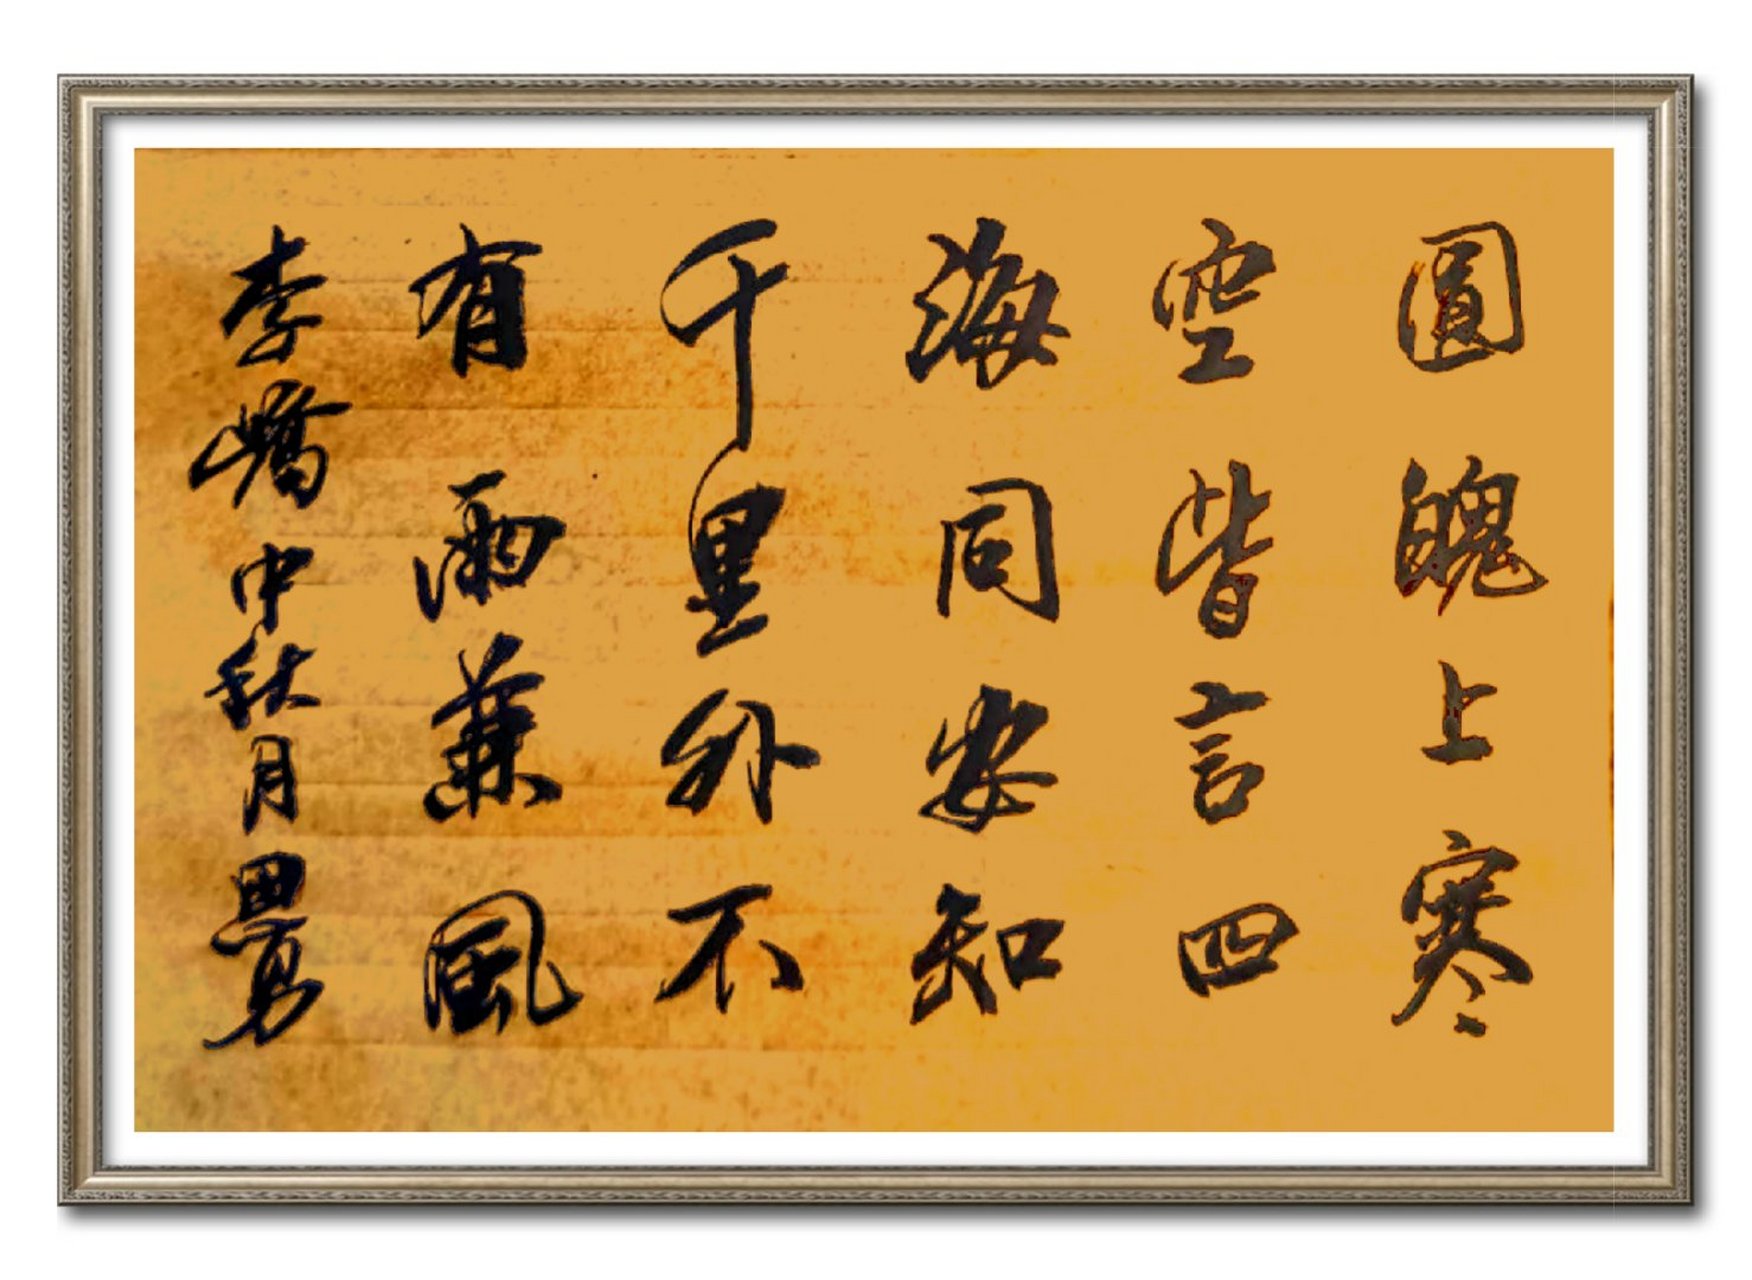 圓魄上寒
空皆言四
海同安知
千里外不
有雨兼風
李嶠中秋月